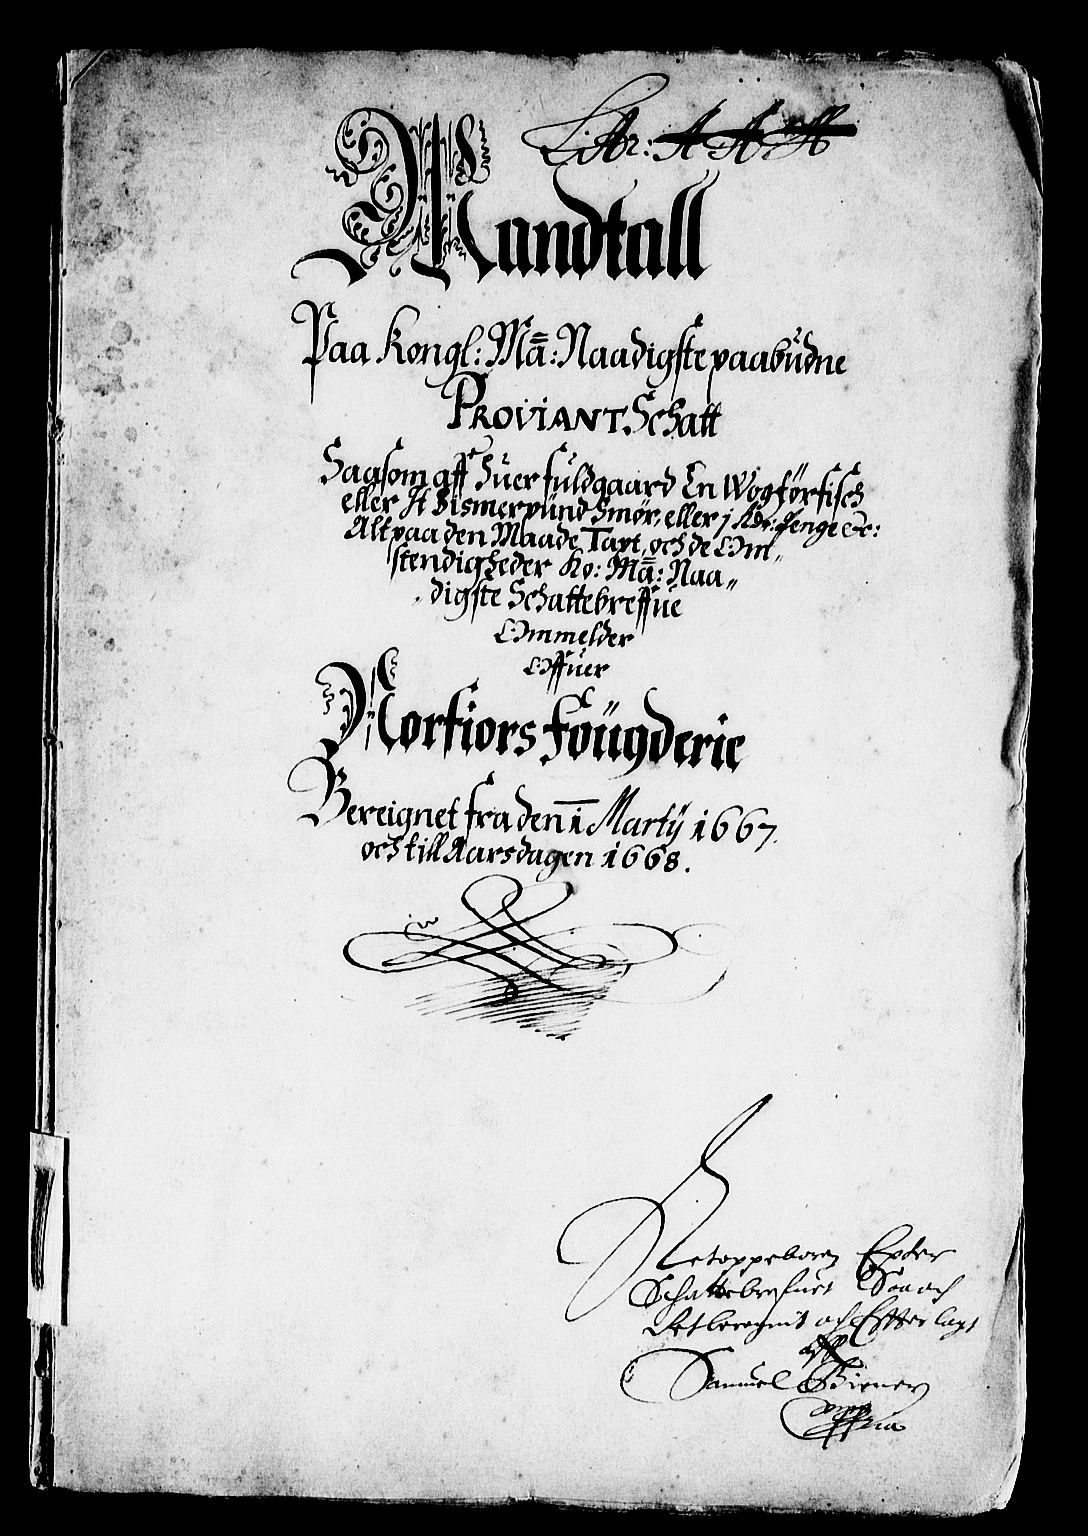 Littr: A A A
Mandtall
Paa Kongl: Mā: Naadigste paabudne
PROVIANT Schatt
Sagsom aff Huer fuldgaard En Wog förfisch
eller It Bismerpund Smør, eller j Rdr: Penge etc:
Alt paa den Maade Taxt, och de Om„
stendigheder Ko: Mā: Naa„
„digste Schattebreffue
Ommelder
Offuer
Norfiors Foügderie
Bereignet fra den 1 Martij 1667.
och till Aarsdagen 1668.
Schattebrefuet Saa och
och Effter lagt
aff
Samuel